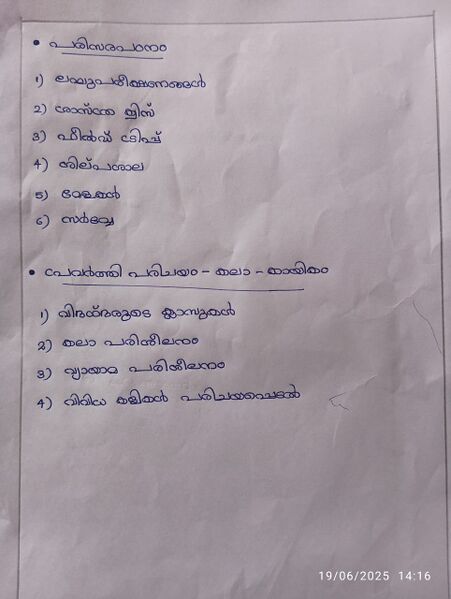 • പരിസരപഠനം
1) ലഘുപരീക്ഷണങ്ങൾ
2) ശാസ്ത്ര ക്വിസ്
3) ഫീൽഡ് ട്രിപ്പ്
4) ശില്പശാല
5) മേളകൾ
6) സർവ്വേ
• പ്രവർത്തി പരിചയം - കലാ - കായികം
1) വിദഗ്ദരുടെ ക്ലാസുകൾ
2) കലാ പരിശീലനം
3) വ്യായാമ പരിശീലനം
4) വിവിധ കളികൾ പരിചയപ്പെടൽ
19/06/2025 14:16